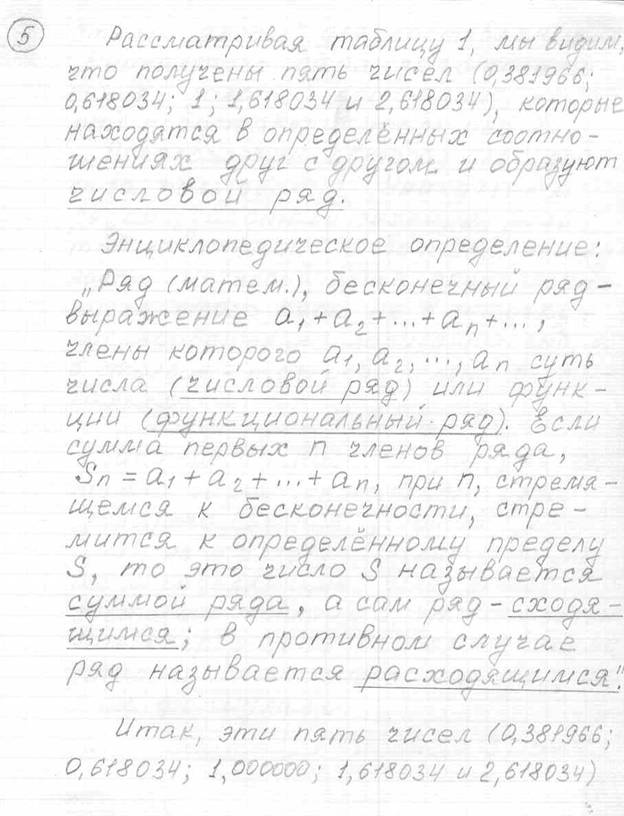 5
Рассматривая таблицу 1, мы видим,
что получены пять чисел (0,381966;
0,618034; 1; 1,618034 и 2,618034), которые
находятся в определённых соотно-
шениях друг с другом и образуют
числовой ряд.
Энциклопедическое определение:
„Ряд (матем.), бесконечный ряд -
выражение a₁ + a₂ + ... + aₙ + ... ,
члены которого a₁, a₂, ..., aₙ суть
числа (числовой ряд) или функ-
ции (функциональный ряд). Если
сумма первых n членов ряда,
Sₙ = a₁ + a₂ + ... + aₙ, при n, стремя-
щемся к бесконечности, стре-
мится к определённому пределу
S, то это число S называется
суммой ряда, а сам ряд - сходя-
щимся; в противном случае
ряд называется расходящимся."
Итак, эти пять чисел (0,381966;
0,618034; 1,000000; 1,618034 и 2,618034)